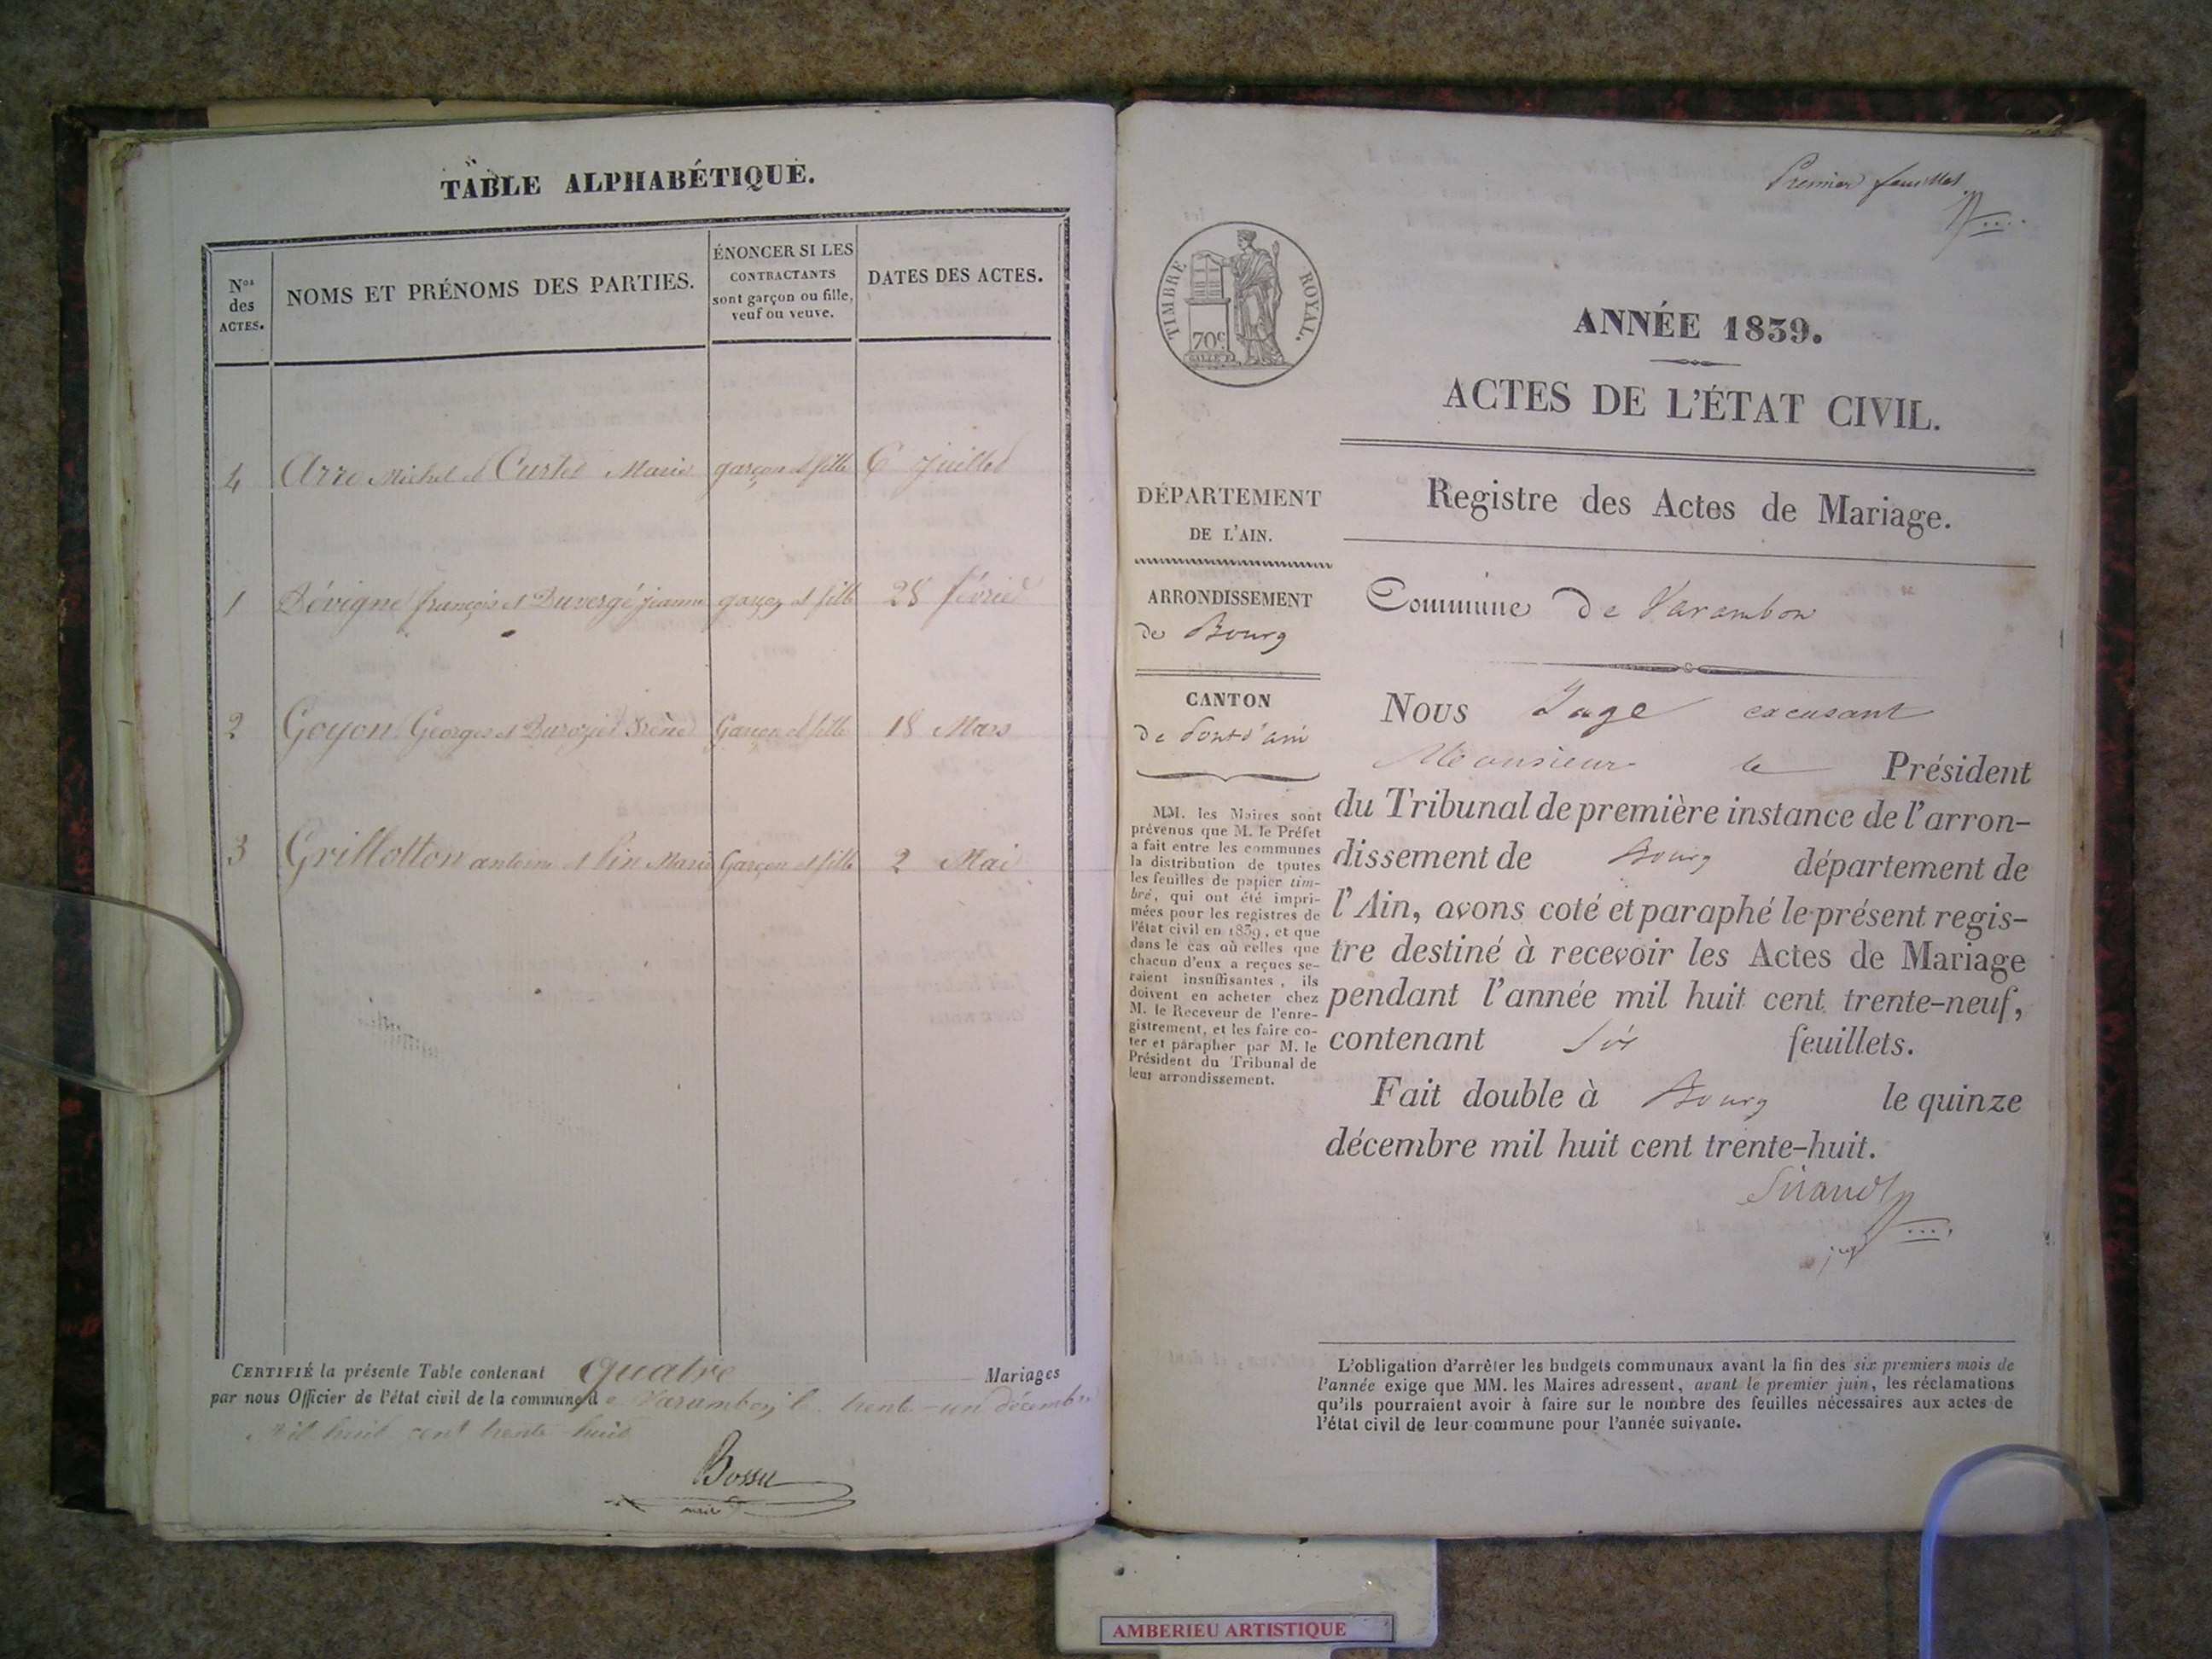 TABLE ALPHABÉTIQUE.
Nos des ACTES.
NOMS ET PRÉNOMS DES PARTIES.
ÉNONCER SI LES
CONTRACTANTS
sont garçon ou fille,
veuf ou veuve.
DATES DES ACTES.
4 Michel et Curtet Marie garçon et fille 6 Juillet
1 Dévigne françois et Duvergé jeanne garçon et fille 28 février
2 Goyon Georges et Irène Garçon et fille 18 Mars
3 Grillotton antoine et Pin Marie Garçon et fille 2 Mai
CERTIFIÉ la présente Table contenant quatre Mariages
par nous Officier de l'état civil de la commune de Varambon, le trente-un décembre
Mil huit cent trente huit
Bossu
maire
Premier feuillet
TIMBRE ROYAL.
70c
ANNÉE 1839.
ACTES DE L'ÉTAT CIVIL.
Registre des Actes de Mariage.
DÉPARTEMENT
DE L'AIN.
ARRONDISSEMENT
de Bourg
CANTON
de Pont d'ain
MM. les Maires sont
prévenus que M. le Préfet
a fait entre les communes
la distribution de toutes
les feuilles de papier tim-
bré, qui ont été impri-
mées pour les registres de
l'état civil en 1839, et que
dans le cas où celles que
chacun d'eux a reçues se-
raient insuffisantes, ils
doivent en acheter chez
M. le Receveur de l'enre-
gistrement, et les faire co-
ter et parapher par M. le
Président du Tribunal de
leur arrondissement.
Commune de Varambon
Nous Juge excusant
Monsieur le Président
du Tribunal de première instance de l'arron-
dissement de Bourg département de
l'Ain, avons coté et paraphé le présent regis-
tre destiné à recevoir les Actes de Mariage
pendant l'année mil huit cent trente-neuf,
contenant Six feuillets.
Fait double à Bourg le quinze
décembre mil huit cent trente-huit.
Sirand
juge
L'obligation d'arrêter les budgets communaux avant la fin des six premiers mois de
l'année exige que MM. les Maires adressent, avant le premier juin, les réclamations
qu'ils pourraient avoir à faire sur le nombre des feuilles nécessaires aux actes de
l'état civil de leur commune pour l'année suivante.
AMBERIEU ARTISTIQUE